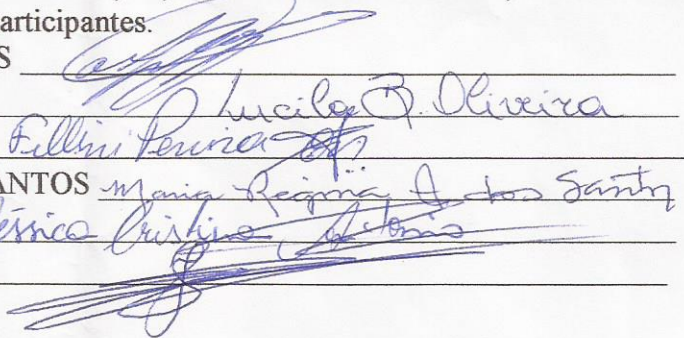 articipantes.
S
Lucila B. Oliveira
Fellini Pereira
ANTOS Maria Regina A dos Santos
éssica Cristina Antonio